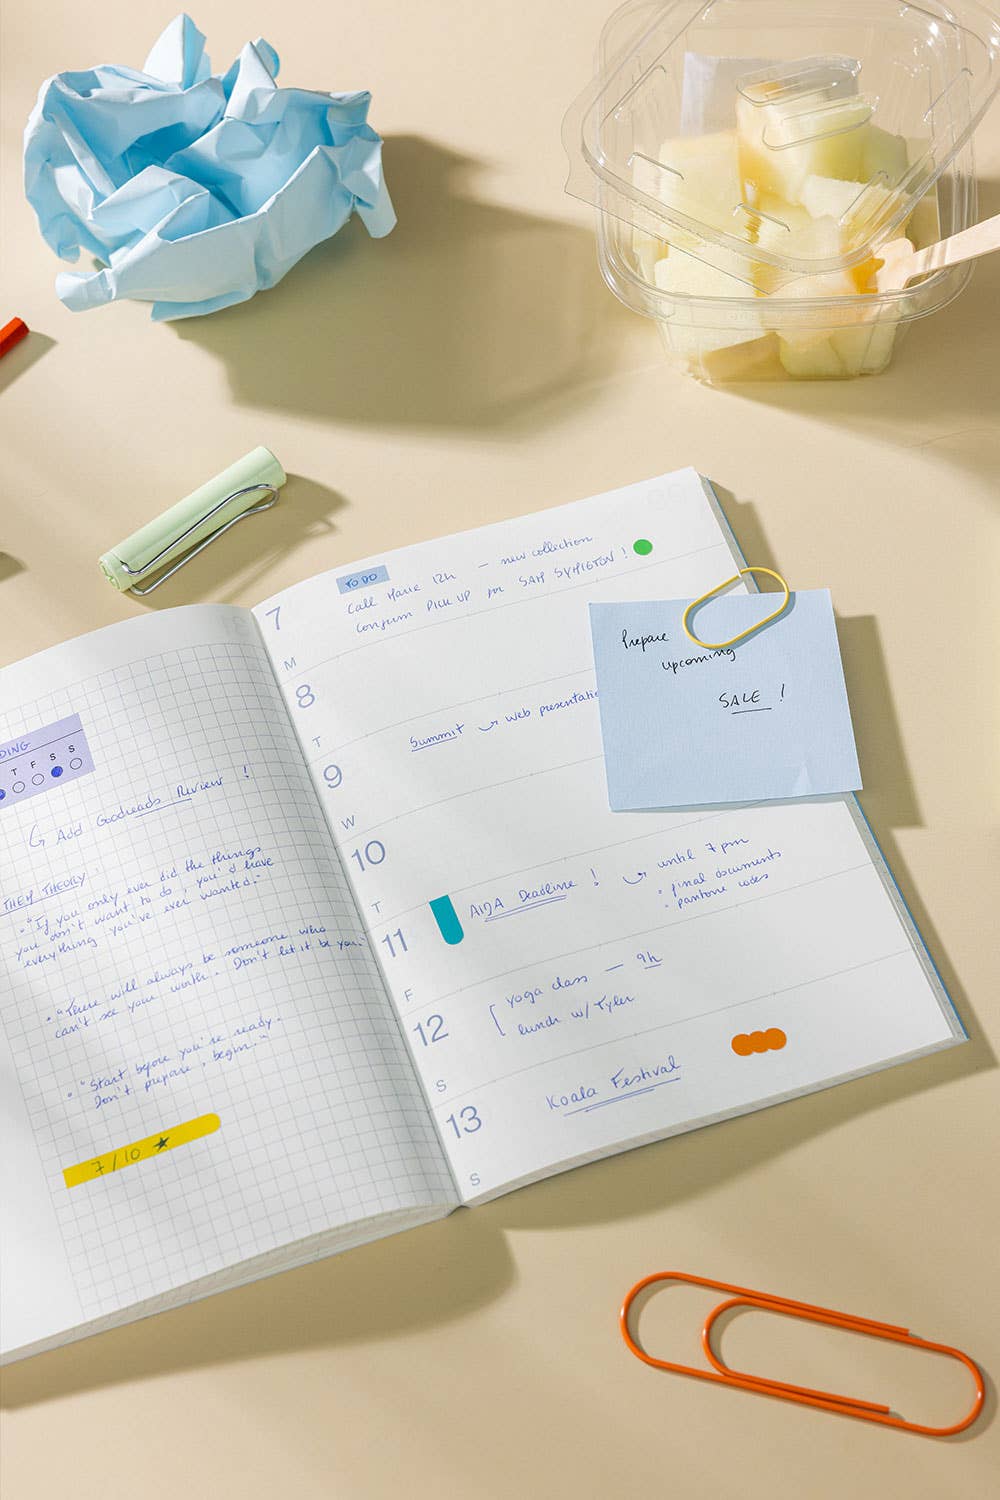 DING
T F S S
Add Goodreads Review !
THEM THEORY:
• "If you only ever did the things
you don't want to do, you'd have
everything you've ever wanted."
• "There will always be someone who
can't see your worth. Don't let it be you."
• "Start before you're ready.
Don't prepare, begin."
7/10 ★
TO DO
7
M
Call Marie 12h — new collection
Confirm PICK UP for SAM SYMIGTON !
8
T
9
W
Summit web presentatio
10
T
11
F
AIDA Deadline ! until 7pm
• final documents
• pantone codes
12
S
yoga class — 9h
lunch w/ Tyler
13
S
Koala Festival
Prepare
upcoming
SALE !